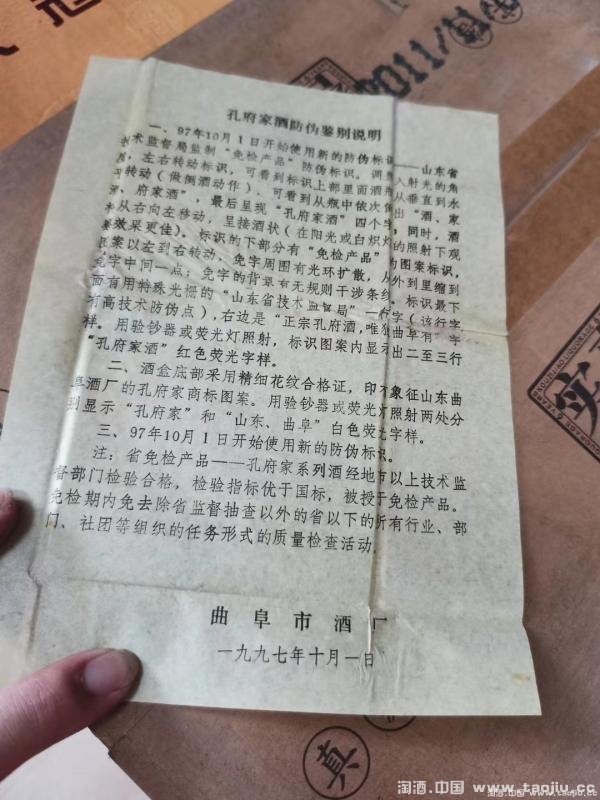 2011/
孔府家酒防伪鉴别说明
一、97年10月1日开始使用新的防伪标识——山东省
技术监督局监制“免检产品”防伪标识。调 入射光的角
,左右转动标识,可看到标识上部里面酒瓶从垂直到水
转动(做倒酒动作)、可看到从瓶中依次倒出“酒、家
、府家酒”,最后呈现“孔府家酒”四个字,同时,酒
从右向左移动,呈接酒状(在阳光或白炽灯的照射下观
效果更佳)。标识的下部分有“免检产品”为图案标识,
图案以左到右转动,免字周围有光环扩散,从外到里缩到
免字中间一点;免字的背景有无规则干涉条纹。标识最下
面有用特殊光栅的“山东省技术监督局”一行字(该行字
有高技术防伪点),右边是“正宗孔府酒,唯独曲阜有”字
样。用验钞器或荧光灯照射,标识图案内显示出二至三行
“孔府家酒”红色荧光字样。
二、酒盒底部采用精细花纹合格证,印有象征山东曲
阜酒厂的孔府家商标图案。用验钞器或荧光灯照射两处分
别显示“孔府家”和“山东、曲阜”白色荧光字样。
三、97年10月1日开始使用新的防伪标识。
注:省免检产品——孔府家系列酒经地市以上技术监
督部门检验合格,检验指标优于国标,被授于免检产品。
免检期内免去除省监督抽查以外的省以下的所有行业、部
门、社团等组织的任务形式的质量检查活动。
曲阜市酒厂
一九九七年十月一日
实
真
淘酒.中国 www.taojiu.cc
淘酒.中国 www.taojiu.cc